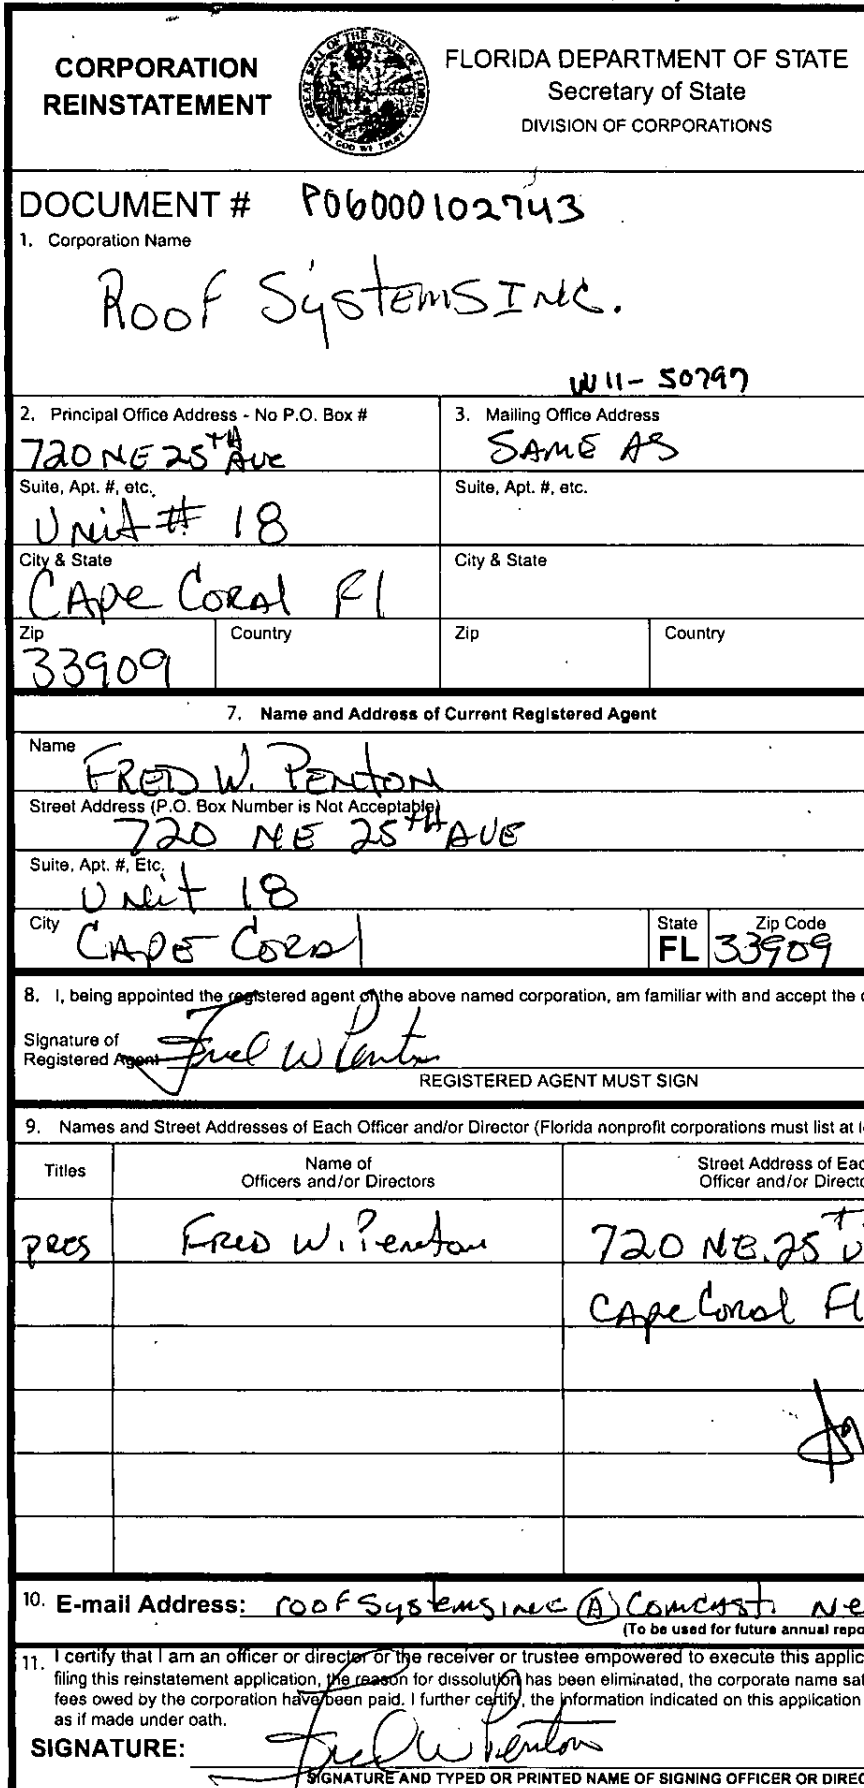 CORPORATION
REINSTATEMENT
GREAT SEAL OF THE STATE OF FLORIDA
IN GOD WE TRUST
FLORIDA DEPARTMENT OF STATE
Secretary of State
DIVISION OF CORPORATIONS
DOCUMENT # P06000102743
1. Corporation Name
Roof Systems Inc.
W11-50797
2. Principal Office Address - No P.O. Box #
720 NE 25TH Ave
3. Mailing Office Address
SAME AS
Suite, Apt. #, etc.
Unit # 18
Suite, Apt. #, etc.
City & State
CApe CoRAl Fl
City & State
Zip
33909
Country
Zip
Country
7. Name and Address of Current Registered Agent
Name
FRED W. PENTON
Street Address (P.O. Box Number is Not Acceptable)
720 NE 25TH AVE
Suite, Apt. #, Etc.
Unit 18
City
CAPE CORAl
State
FL
Zip Code
33909
8. I, being appointed the registered agent of the above named corporation, am familiar with and accept the
Signature of
Registered Agent
Fred W Penton
REGISTERED AGENT MUST SIGN
9. Names and Street Addresses of Each Officer and/or Director (Florida nonprofit corporations must list at
Titles
Name of
Officers and/or Directors
Street Address of
Officer and/or
pres
Fred W. Penton
720 NE. 25
CApe Coral Fl
10. E-mail Address: roofsystemsinc @ Comcast.
(To be used for future annual
11. I certify that I am an officer or director or the receiver or trustee empowered to execute this
filing this reinstatement application, the reason for dissolution has been eliminated, the corporate name
fees owed by the corporation have been paid. I further certify, the information indicated on this application
as if made under oath.
SIGNATURE:
Fred W Penton
SIGNATURE AND TYPED OR PRINTED NAME OF SIGNING OFFICER OR